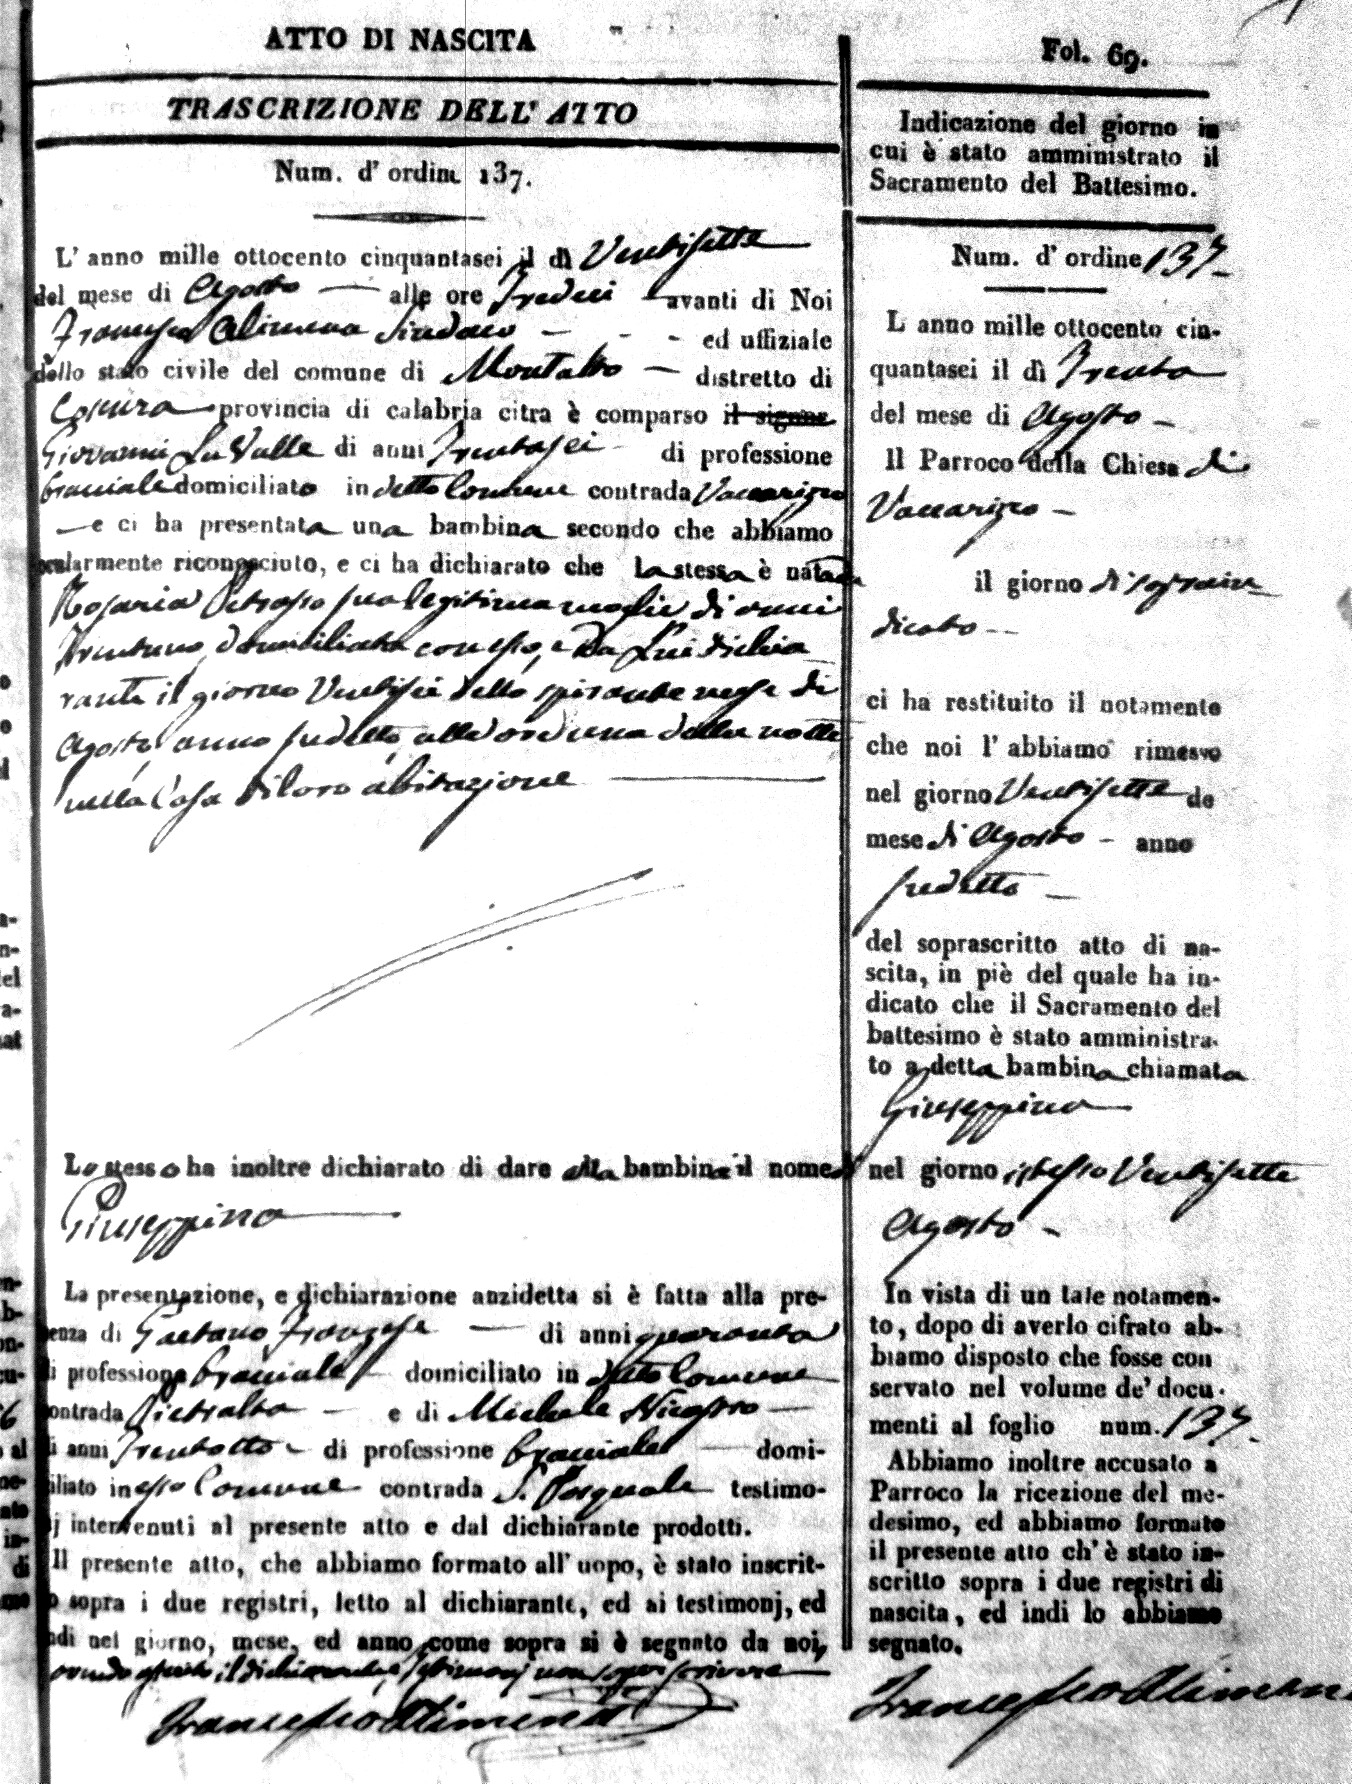 ATTO DI NASCITA
TRASCRIZIONE DELL' ATTO
Num. d' ordine 137.
L' anno mille ottocento cinquantasei il dì Ventisette
del mese di Agosto — alle ore Tredici — avanti di Noi
Francesco Alimena Sindaco — - - ed uffiziale
dello stato civile del comune di Montalto — distretto di
Cosenza provincia di calabria citra è comparso il signor
Giovanni La Valle di anni Trentasei - di professione
bracciale domiciliato in detto Comune contrada Vaccarizzo
— e ci ha presentata una bambina secondo che abbiamo
ocularmente riconosciuto, e ci ha dichiarato che la stessa è nata da
Rosaria Petrasso sua legitima moglie di anni
Trentuno, domiciliata con esso, e da Lui dichia
rante il giorno Ventisei dello spirante mese di
Agosto, anno sudetto, alle ore una della notte
nella Casa di loro abitazione —
Lo stesso ha inoltre dichiarato di dare alla bambina il nome di
Giuseppina
La presentazione, e dichiarazione anzidetta si è fatta alla pre-
senza di Gaetano Franzese — di anni quaranta
di professione bracciale — domiciliato in detto Comune
contrada Pietralta — e di Michele Nicastro —
di anni Trentotto - di professione bracciale — domi-
ciliato in esso Comune contrada S. Pasquale testimo-
nj intervenuti al presente atto e dal dichiarante prodotti.
Il presente atto, che abbiamo formato all' uopo, è stato inscrit-
to sopra i due registri, letto al dichiarante, ed ai testimonj, ed
indi nel giorno, mese, ed anno come sopra si è segnato da noi,
avendo il dichiarante, testimonj non saper scrivere
Francesco Alimena
Fol. 69.
Indicazione del giorno in
cui è stato amministrato il
Sacramento del Battesimo.
Num. d' ordine 137-
L anno mille ottocento cin-
quantasei il dì Trenta
del mese di Agosto -
Il Parroco della Chiesa di
Vaccarizzo -
il giorno di sopra in-
dicato --
ci ha restituito il notamento
che noi l' abbiamo rimesso
nel giorno Ventisette de
mese di Agosto - anno
sudetto -
del soprascritto atto di na-
scita, in piè del quale ha in-
dicato che il Sacramento del
battesimo è stato amministra-
to a detta bambina chiamata
Giuseppina
nel giorno istesso Ventisette
Agosto -
In vista di un tale notamen-
to, dopo di averlo cifrato ab-
biamo disposto che fosse con
servato nel volume de' docu-
menti al foglio num. 137.
Abbiamo inoltre accusato a
Parroco la ricezione del me-
desimo, ed abbiamo formato
il presente atto ch' è stato in-
scritto sopra i due registri di
nascita, ed indi lo abbiamo
segnato.
Francesco Alimena